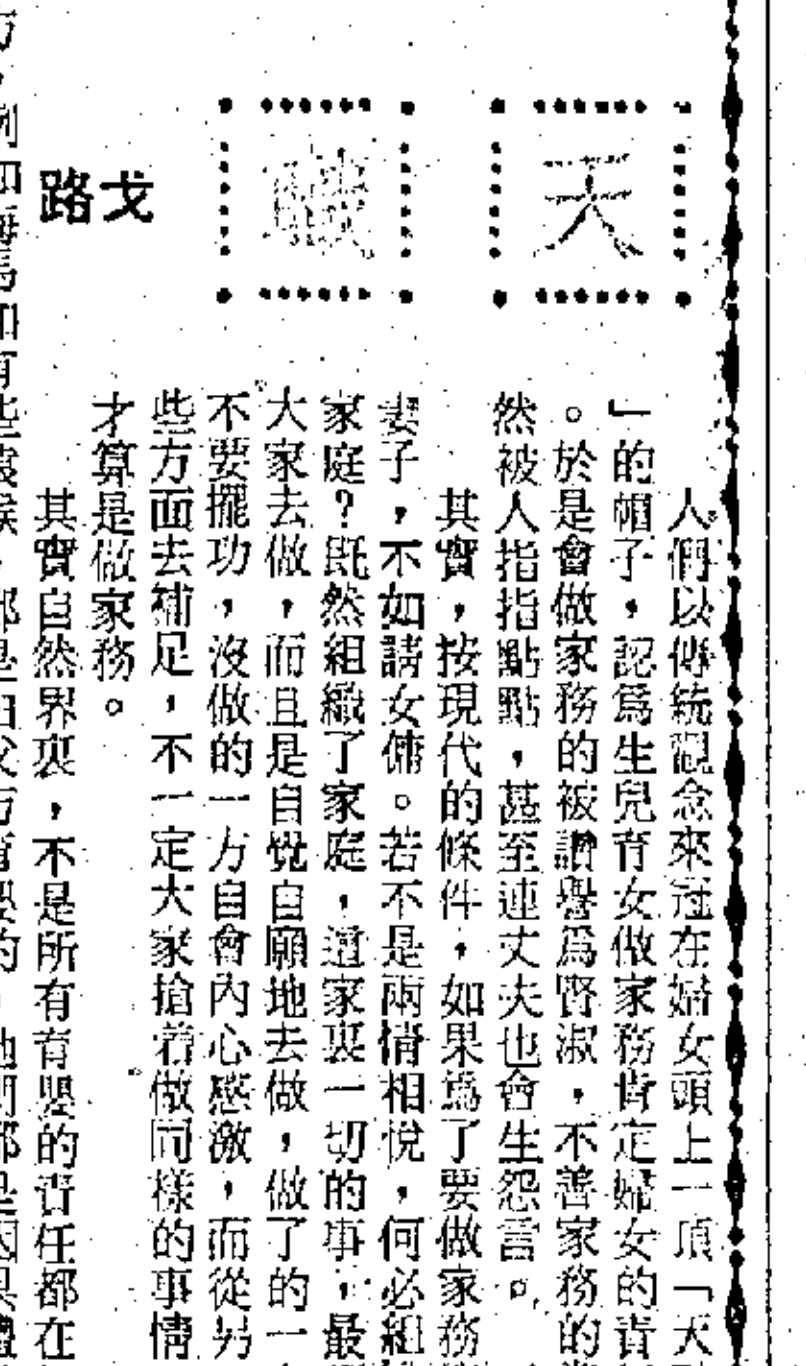 天職
戈路
人們以傳統觀念來冠在婦女頭上一頂「天
」的帽子，認爲生兒育女做家務肯定婦女的責
。於是會做家務的被讚譽爲賢淑，不善家務的
然被人指指點點，甚至連丈夫也會生怨言。
其實，按現代的條件，如果爲了要做家務
妻子，不如請女傭。若不是兩情相悅，何必組
家庭？既然組織了家庭，這家裏一切的事，最
大家去做，而且是自覺自願地去做，做了的一
不要擺功，沒做的一方自會內心感激，而從另
些方面去補足，不一定大家搶着做同樣的事情
才算是做家務。
其實自然界裏，不是所有育嬰的責任都在